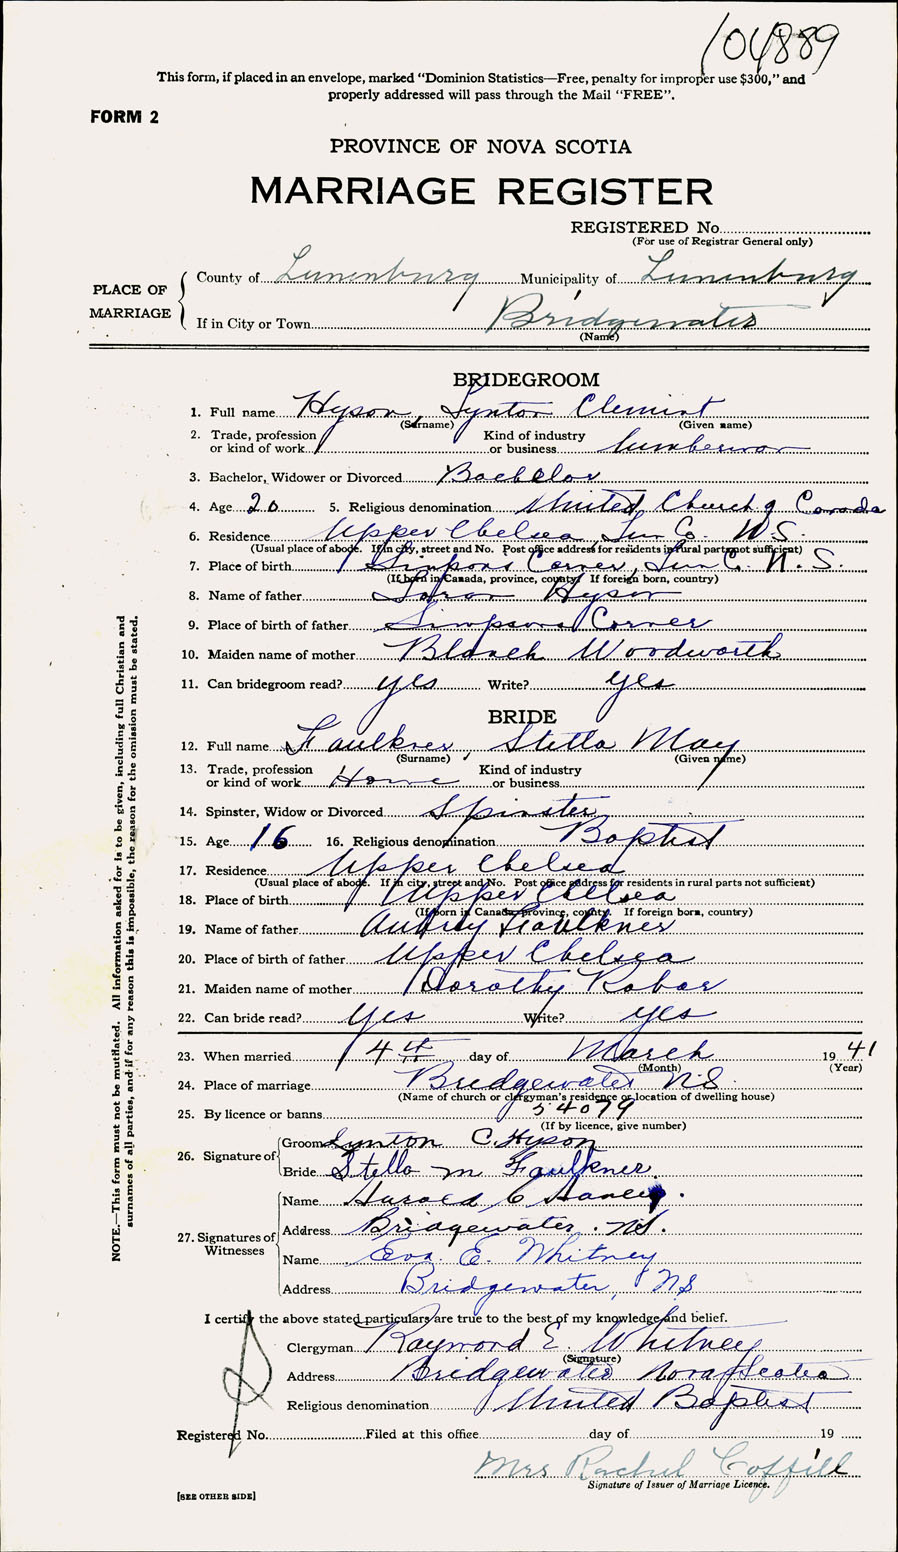 104889
This form, if placed in an envelope, marked “Dominion Statistics—Free, penalty for improper use $300,” and
properly addressed will pass through the Mail “FREE”.
FORM 2
PROVINCE OF NOVA SCOTIA
MARRIAGE REGISTER
REGISTERED No.
(For use of Registrar General only)
PLACE OF MARRIAGE
County of Lunenburg Municipality of Lunenburg
If in City or Town Bridgewater
(Name)
BRIDEGROOM
1. Full name Hyson, Lynton Clement
(Surname) (Given name)
2. Trade, profession or kind of work Kind of industry or business lumberman
3. Bachelor, Widower or Divorced Bachelor
4. Age 20 5. Religious denomination United Church of Canada
6. Residence Upper Chelsea, Lun Co. N.S.
(Usual place of abode. If in city, street and No. Post office address for residents in rural parts not sufficient)
7. Place of birth Simpsons Corner, Lun C. N.S.
(If born in Canada, province, county. If foreign born, country)
8. Name of father Hyson
9. Place of birth of father Simpsons Corner
10. Maiden name of mother Blanch Woodworth
11. Can bridegroom read? yes Write? yes
BRIDE
12. Full name Faulkner, Stella May
(Surname) (Given name)
13. Trade, profession or kind of work Home Kind of industry or business
14. Spinster, Widow or Divorced Spinster
15. Age 16 16. Religious denomination Baptist
17. Residence Upper Chelsea
(Usual place of abode. If in city, street and No. Post office address for residents in rural parts not sufficient)
18. Place of birth Upper Chelsea
(If born in Canada, province, county. If foreign born, country)
19. Name of father Aubrey Faulkner
20. Place of birth of father Upper Chelsea
21. Maiden name of mother Dorothy Robar
22. Can bride read? Yes Write? yes
23. When married 14th day of March 1941
(Month) (Year)
24. Place of marriage Bridgewater N.S.
(Name of church or clergyman's residence or location of dwelling house)
25. By licence or banns 54079
(If by licence, give number)
26. Signature of Groom Lynton C. Hyson
Bride Stella M Faulkner
27. Signatures of Witnesses
Name Harold C
Address Bridgewater. N.S.
Name Eva E. Whitney
Address Bridgewater, NS
I certify the above stated particulars are true to the best of my knowledge and belief.
Clergyman Raymond E. Whitney
(Signature)
Address Bridgewater Nova Scotia
Religious denomination United Baptist
Registered No. Filed at this office day of 19
Mrs Rachel Coffill
Signature of Issuer of Marriage Licence.
[SEE OTHER SIDE]
NOTE.—This form must not be mutilated. All information asked for is to be given, including full Christian and
surnames of all parties, and if for any reason this is impossible, the reason for the omission must be stated.